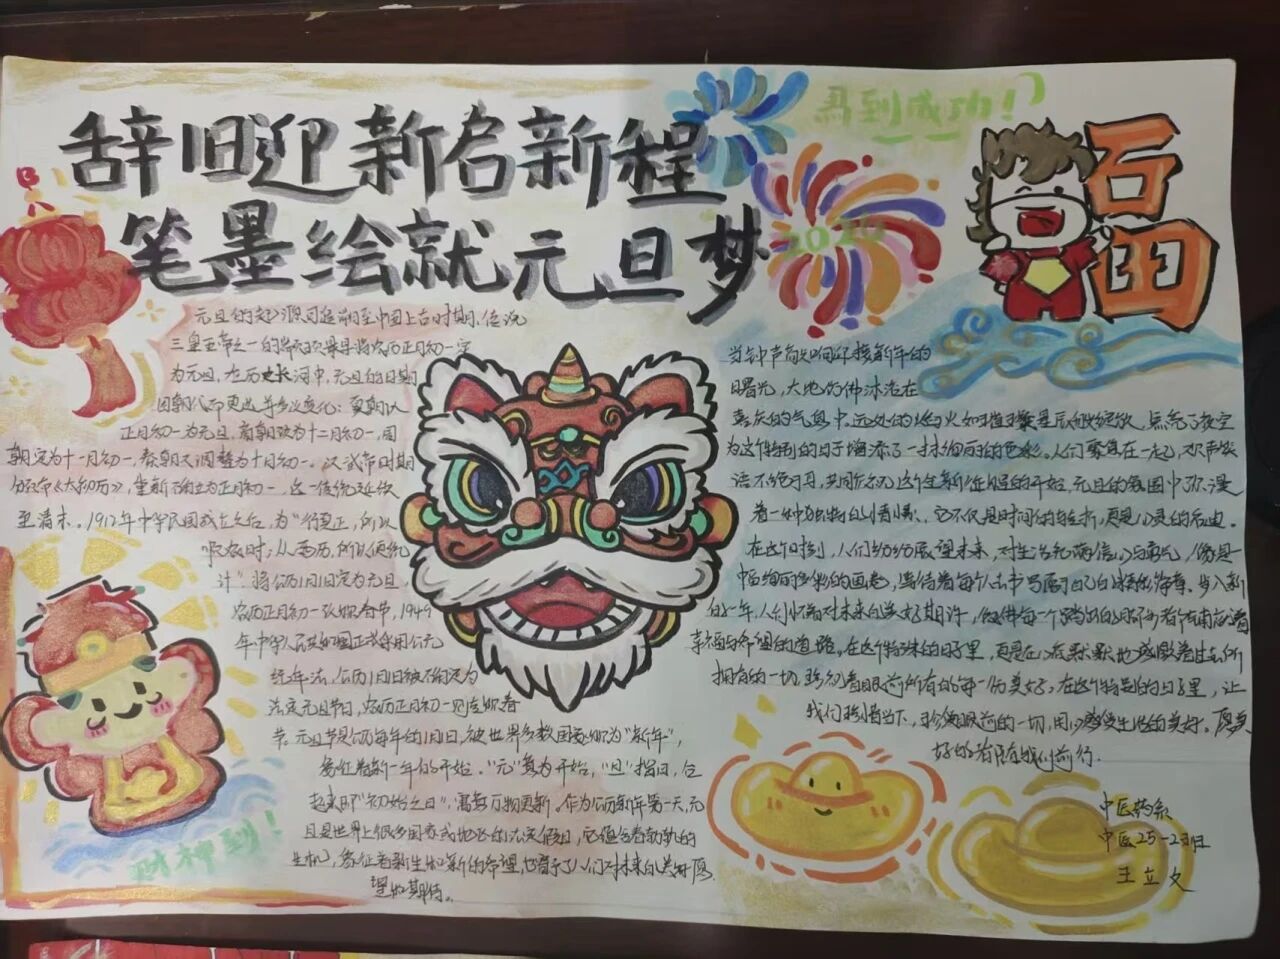 辞旧迎新启新程
笔墨绘就元旦梦
马到成功！
2026
元旦的起源可追溯至中国上古时期，传说
三皇五帝之一的颛顼最早将农历正月初一定
为元旦，在历史长河中，元旦的日期
因朝代而更迭并多次变化：夏朝以
正月初一为元旦，商朝改为十二月初一，周
朝定为十一月初一，秦朝又调整为十月初一。汉武帝时期
颁布《太初历》，重新确立为正月初一，这一传统延续
至清末。1912年中华民国成立后，为“行夏正，所以
顺农时；从西历，所以便统
计”将公历1月1日定为元旦，
农历正月初一改称春节，1949
年中华人民共和国正式采用公元
纪年法，公历1月1日被确定为
法定元旦节日，农历正月初一则为春
节。元旦节是公历每年的1月1日，被世界多数国家称为“新年”，
象征着新一年的开始。“元”意为开始，“旦”指日，合
起来即“初始之日”，寓意万物更新。作为公历新年第一天，元
旦是世界上很多国家或地区的法定假日，它蕴含着勃勃的
生机，象征着新生和新的希望，也寄予了人们对未来的美好愿
望和期待。
当钟声敲响迎接新年的
曙光，大地仿佛沐浴在
喜庆的气息中。远处的焰火如璀璨星辰般绽放，点亮了夜空
为这个特别的日子增添了一抹绚丽的色彩。人们聚集在一起，欢声笑
语不绝于耳，共同庆祝这个全新征程的开始，元旦的氛围中弥漫
着一种独特的情愫，它不仅是时间的转折，更是心灵的启迪。
在这个时刻，人们纷纷展望未来，对生活充满信心与勇气，像是
一幅绚丽多彩的画卷，等待着每个人去书写属于自己的精彩篇章。步入新
的一年，人们怀着对未来的美好期许，仿佛每一个踏出的脚步都有力地
幸福与希望的道路。在这个特殊的日子里，更是在心底默默地感激着过去所
拥有的一切，珍视着眼前所有的每一份美好，在这个特别的日子里，让
我们把握当下，珍惜眼前的一切，用心感受生活的美好。愿美
好的者陪我们前行。
财神到！
中医药系
中医25-2班
王立文